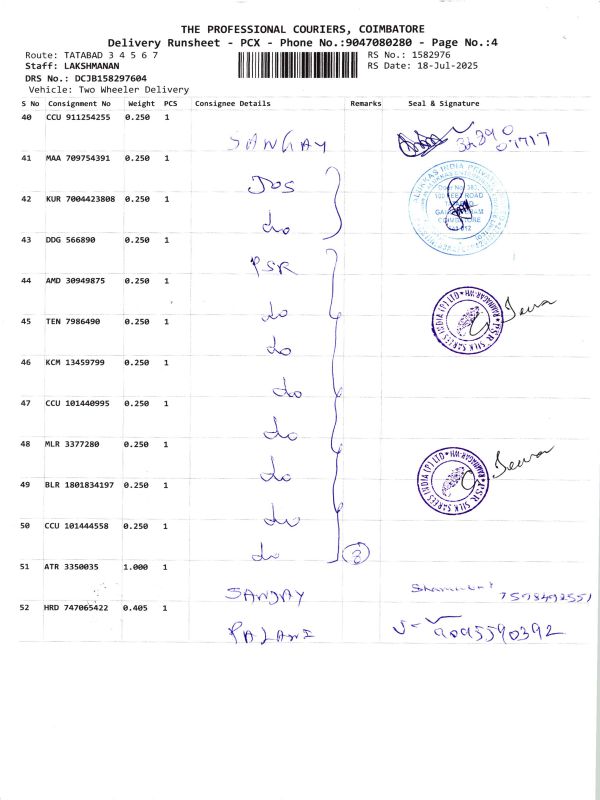 THE PROFESSIONAL COURIERS, COIMBATORE
Delivery Runsheet - PCX - Phone No.:9047080280 - Page No.:4
Route: TATABAD 3 4 5 6 7 RS No.: 1582976
Staff: LAKSHMANAN RS Date: 18-Jul-2025
DRS No.: DCJB158297604
Vehicle: Two Wheeler Delivery
S No Consignment No Weight PCS Consignee Details Remarks Seal & Signature
40 CCU 911254255 0.250 1
SANJAY
41 MAA 709754391 0.250 1
JOS
42 KUR 7004423808 0.250 1
do
43 DDG 566890 0.250 1
PSR
44 AMD 30949875 0.250 1
do
45 TEN 7986490 0.250 1
do
46 KCM 13459799 0.250 1
do
47 CCU 101440995 0.250 1
do
48 MLR 3377280 0.250 1
do
49 BLR 1801834197 0.250 1
do
50 CCU 101444558 0.250 1
do
51 ATR 3350035 1.000 1
SANJAY
52 HRD 747065422 0.405 1
PALANI 9095590392